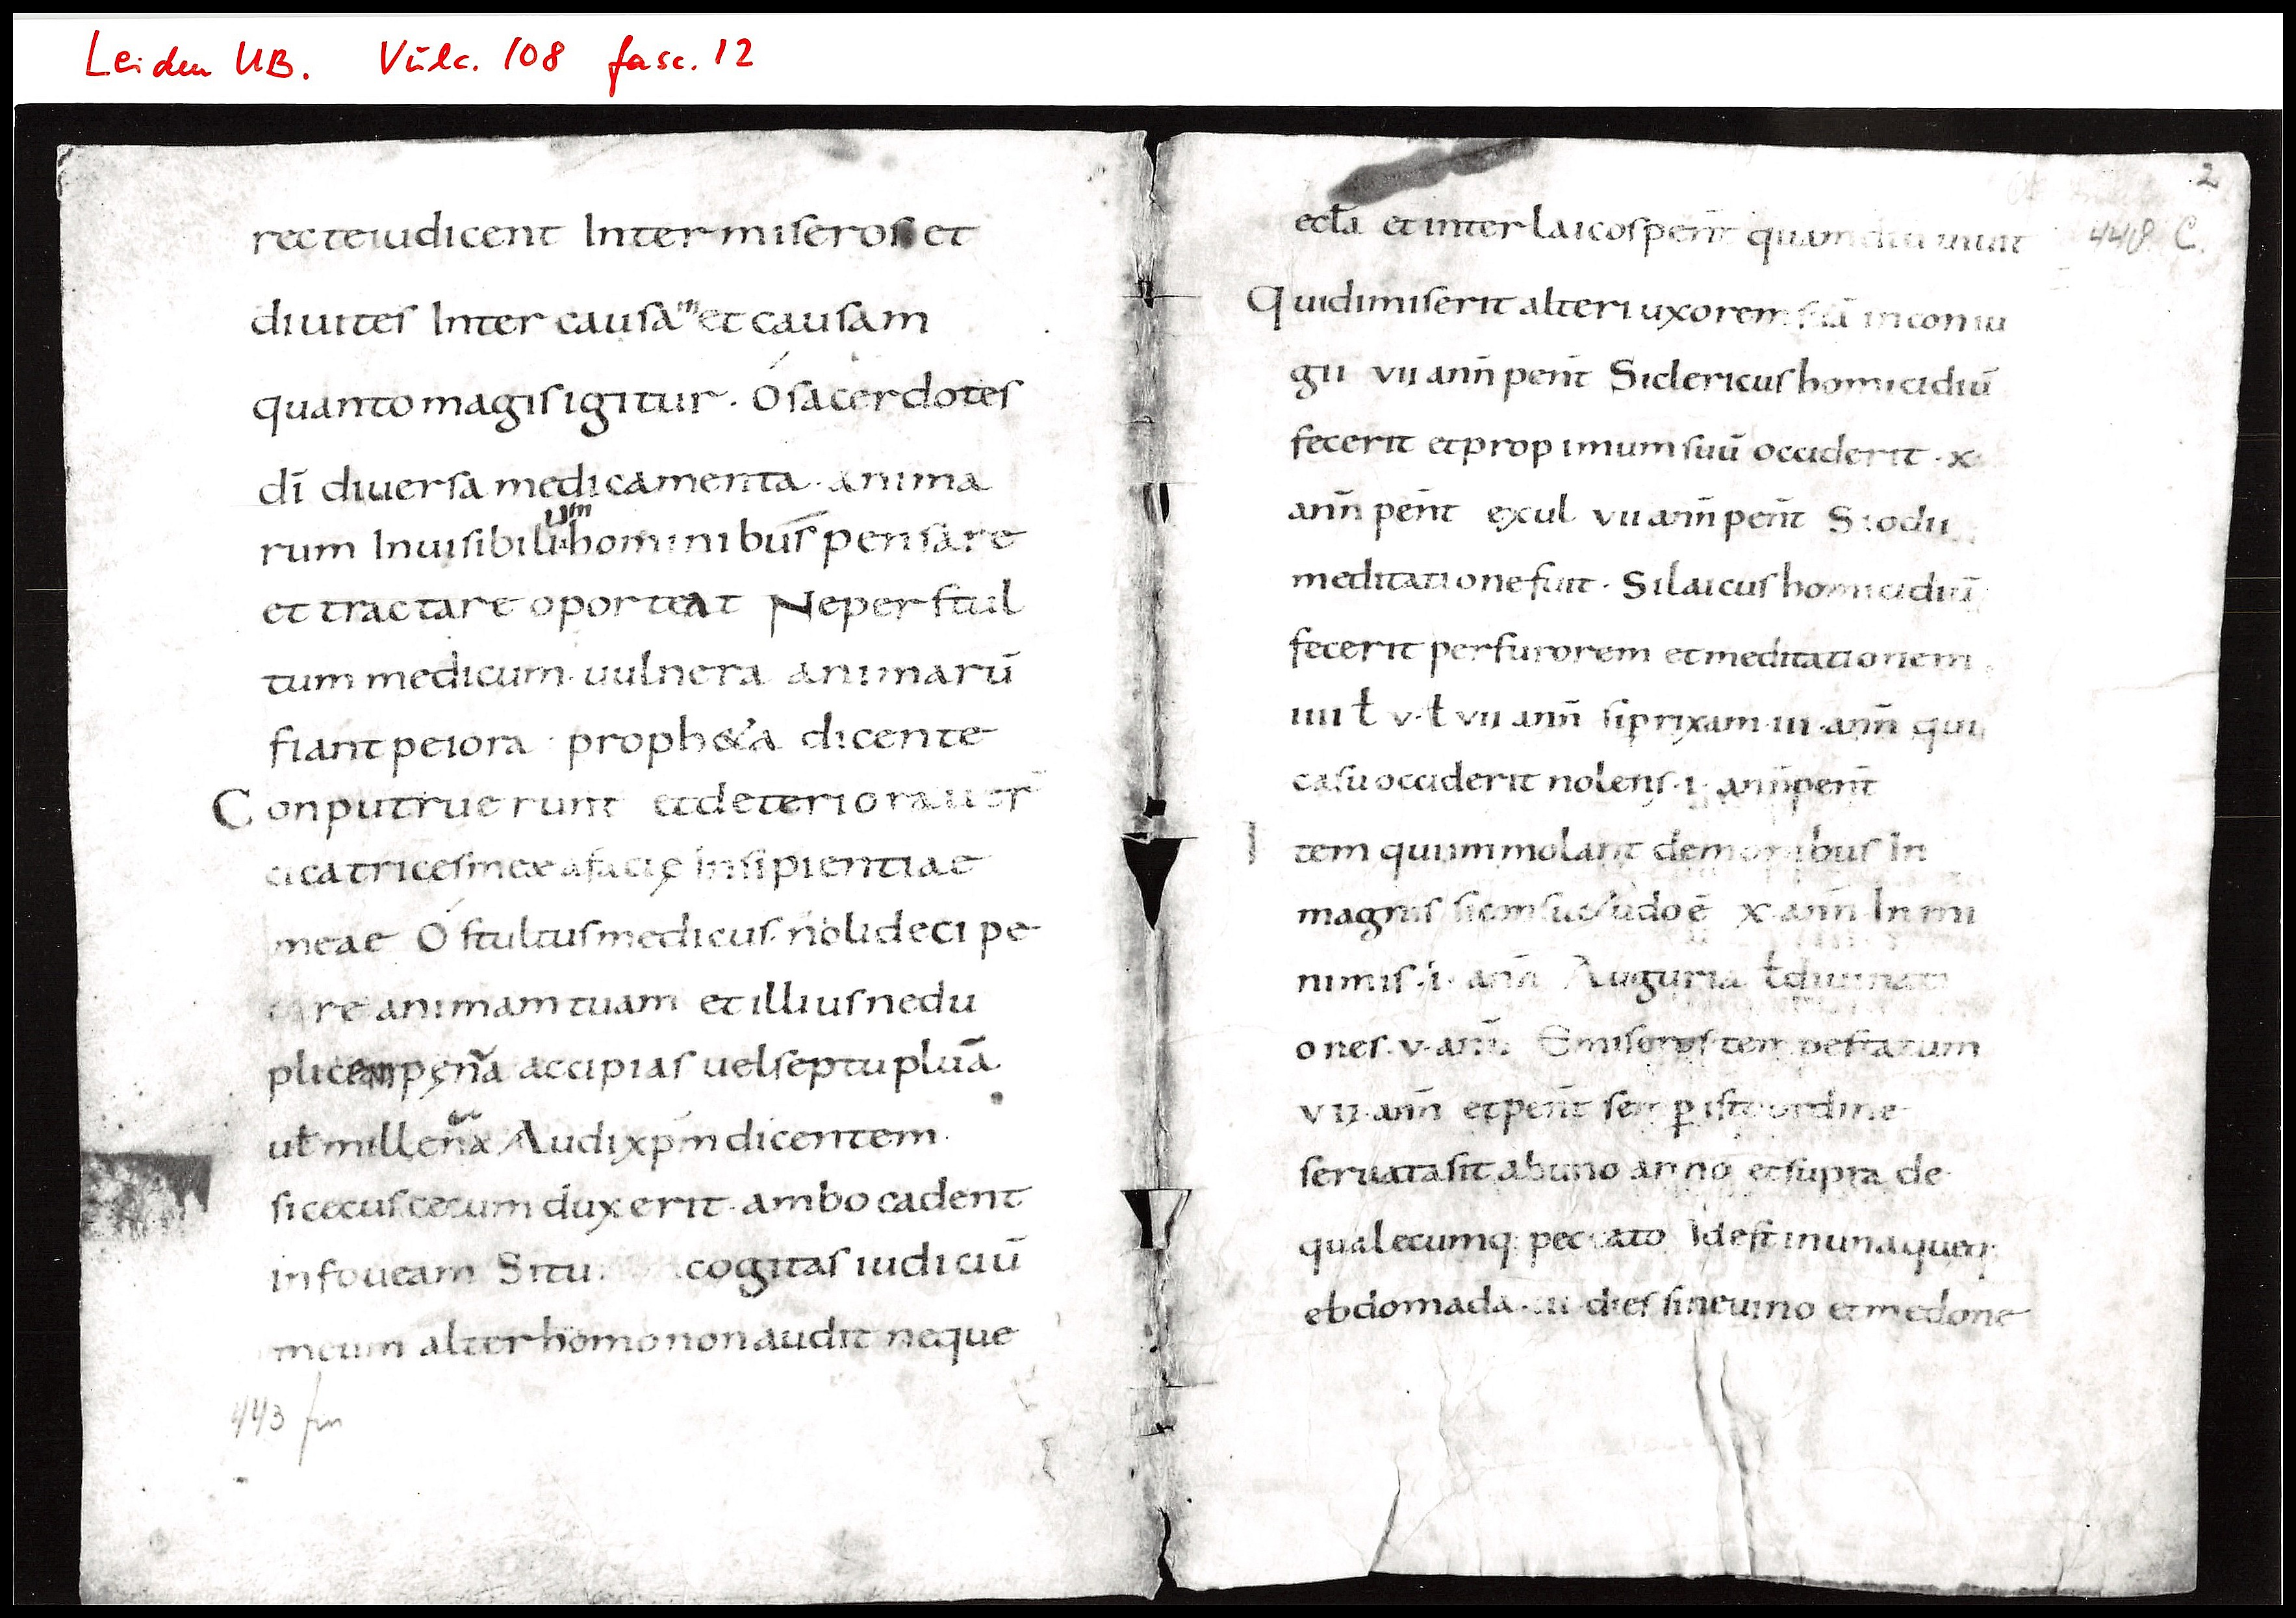 Leiden UB. Vulc. 108 fasc. 12
recteiudicent Inter miseros et
diuites Inter causā m et causam
quanto magis igitur · Ó sacerdotes
dī diuersa medicamenta · anima
um
rum Inuisibili hominibus pensare
et tractare oporteat Ne per stul
tum medicum · uulnera animarū
fiant peiora · proph&a dicente
Conputruerunt et deteriorauer̄
cicatrices mex a facie Insipientiae
meae Ó stultus medicus · noli decipe
re animam tuam et illius ne du
plicem penā accipias uel septupluā
ut millenā Audi xp̄m dicentem ·
si cecus cecum duxerit · ambo cadent
in foueam Si tu cogitas iudiciū
meum alter homo non audit neque
443 fin
2
448. C.
ecła et inter laicos penī̄t quamdiu uiuit
Qui dimiserit alteri uxorem suā in coniu
gii vii ann̄ penīt Si clericus homicidiū
fecerit et propimum suū occiderit · x
ann̄ penīt exul vii ann̄ penīt Si odii
meditatione fuit · Si laicus homicidiū
fecerit per furorem et meditationem
iiii ł v · ł vii ann̄ si p rixam · iii · ann̄ qui
casu occiderit nolens · i · ann̄ penīt
Item qui immolant demonibus In
magnis si consuetudo ē x · ann̄ In mi
nimis · i · ann̄ Auguria ł diuinati
ones · v · ann̄ Emisores tempestatum
vii · ann̄ et penīt semp̱ isto ordine
seruata sit ab uno anno et supra de
qualecumq; peccato Id est in unaqueq;
ebdomada · dies sine uino et medone